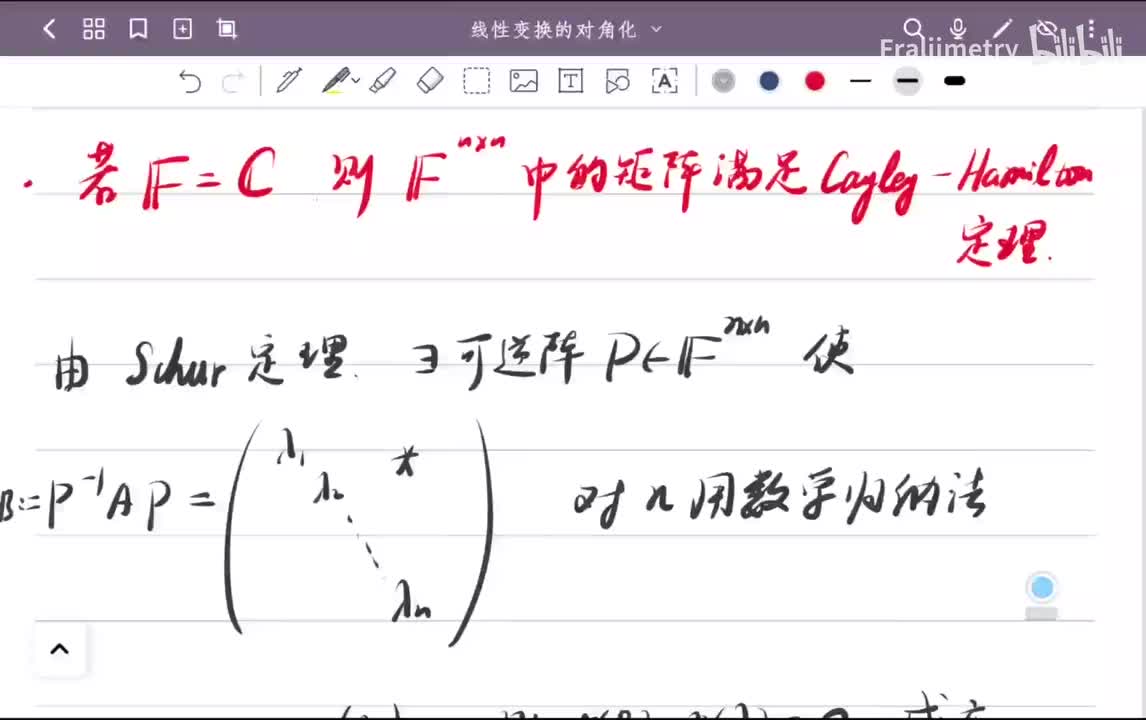 线性变换的对角化
Fraljimetry bilibili
· 若 F = C 则 F^{n×n} 中的矩阵满足 Cayley-Hamilton
定理.
由 Schur 定理. ∃ 可逆阵 P∈F^{n×n} 使
B:= P^{-1}AP = ( λ₁ λ₂ ⋱ λₙ * ) 对 n 用数学归纳法